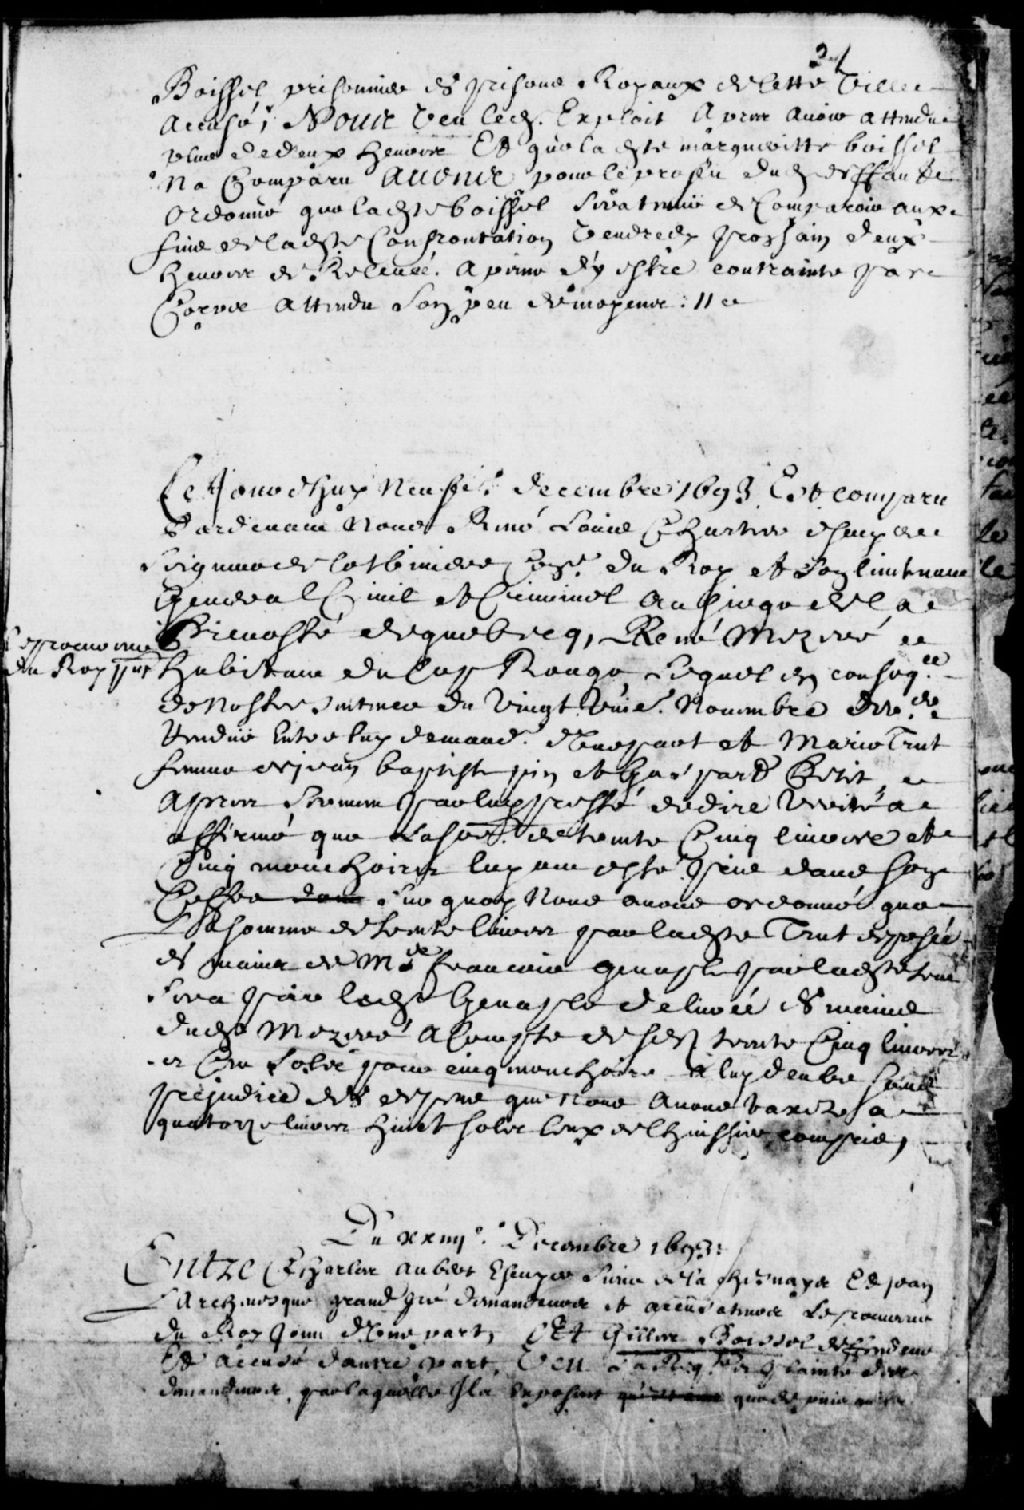 21
Boissel prisonnier és prisons Royaux de cette ville
accusé; Nous veu led. Exploit Apres avoir attendu
plus de deux heures Et que lad.te margueritte boissel
Na Comparu Avons pour le proffit dud. deffaut
Ordonné que lad.te boissel sera tenue de Comparoir aux
fins de lad.te Confrontation vendredy prochain deux
heures de Relevée. A peine d'y estre contrainte par
Corps attendu son peu de moyens
Ce Jourd'huy Neuf.e decembre 1693 Est comparu
Pardevant Nous René Louis Chartier escuyer
Seigneur de lotbiniere Con.er du Roy et Son lieutenant
General Civil et Criminel au siege de la
Prevosté de quebecq, René Mezeré
Le procureur
du Roy
habitant du Cap Rouge Lequel en conseq.ce
de Nostre sentence du vingt Novembre der.
Rendue Entre luy demand.r d'une part et Marie Trut
femme de jean baptiste pin et Gaspard Petit
Apres serment par luy presté de dire verité a
affirmé que la so.e de trente Cinq livres et
Cinq mouchoirs luy ont esté pris dans son
Coffre Sur quoy Nous avons ordonné que
La somme de trente livres par lad.te Trut deposée
és mains de M.e francois genaple par lad.te
Sera par led. Genaple delivrée és mains
dud. Mezeré A Compte desd. trente Cinq livres
et Cent solz pour cinq mouchoirs a luy deubs sans
prejudice des despens que Nous Avons taxez a
quatorze livres huit solz ceux de l'huissier compris,
Du xxiiij.e Decembre 1693
Entre Charles Aubert Escuyer Sieur de la chesnaye Et Jean
L'Archevesque grand pré demandeurs et accusateurs Le procureur
du Roy Joint d'Une part, Et Gilles Boissel deffendeur
Et accusé d'autre part, Veu La Req.te de plainte des
demandeurs, par laquelle Ils exposent que depuis